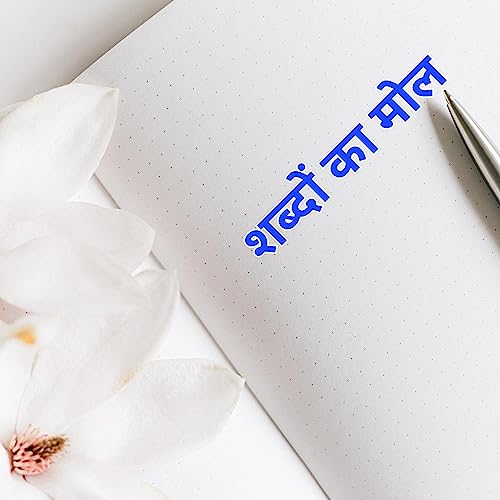 शब्दों का मोल